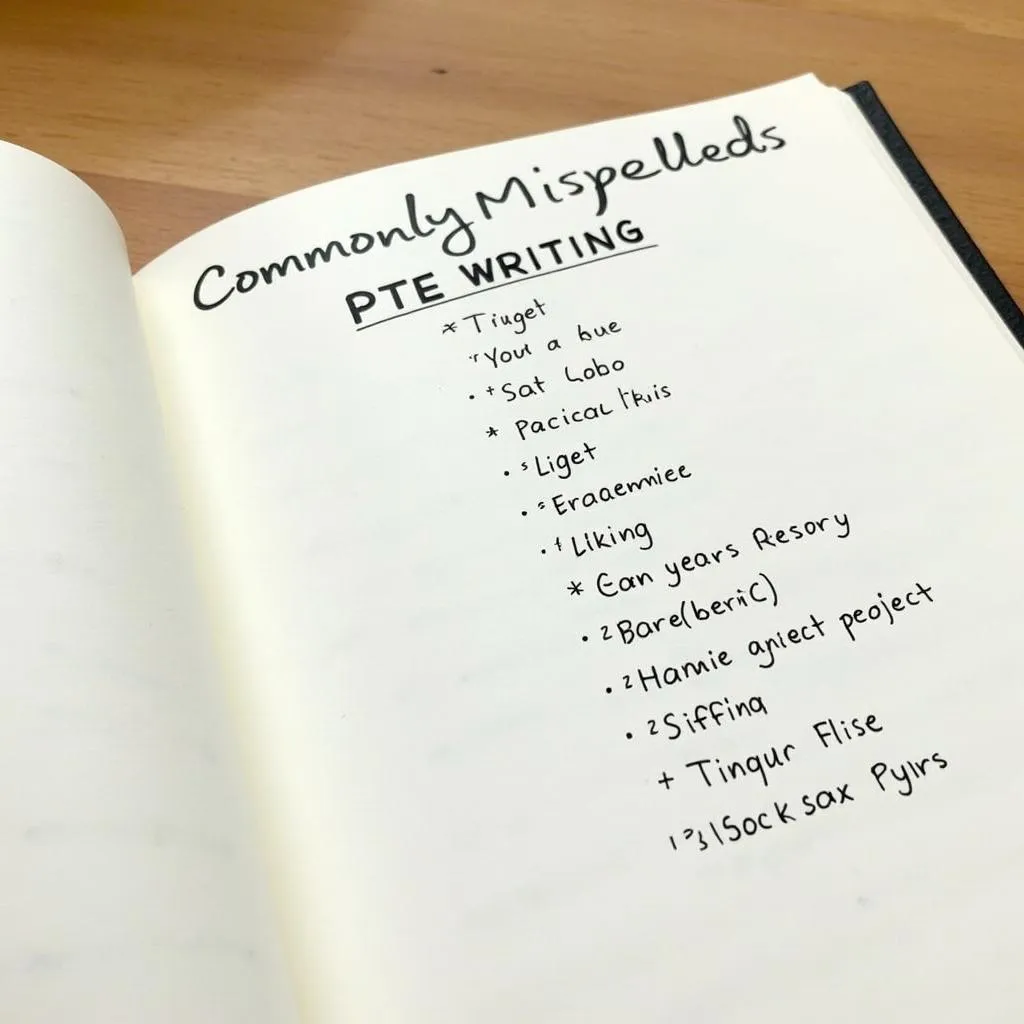 Commonly Mispelleds
PTE WRITING
* Tiuget
Your a bue
• + Sat Lobo
* Pacical
• s Liget
• s Eraaemniee
• + Liking
* Ean years Resory
• 2 Bare(beriiC)
• 2 Hamie peoject
• 2 Siffina
+ Tinqur Flise
Sock sax Pyirs